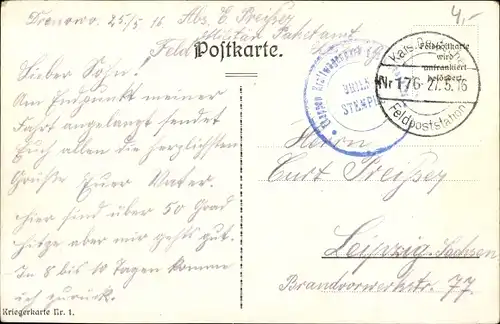 25/5 16 Abs. E. Preißer
Militär Paketamt
4,-
Postkarte.
Feldpostkarte
wird
unfrankiert
befördert
Kais.
Nr 176 27.5.16
Feldpoststation
STEMPEL
Lieber Sohn!
Am Endpunkt meiner
Fahrt angelangt sendet
Euch allen die herzlichsten
Grüße Euer Vater.
hier sind über 50 Grad
hitze aber mir gehts gut.
In 8 bis 10 Tagen komme
ich zurück.
Herrn
Curt Preißer
Leipzig. Sachsen
Brandvorwerkstr. 77.
Kriegerkarte Nr. 1.